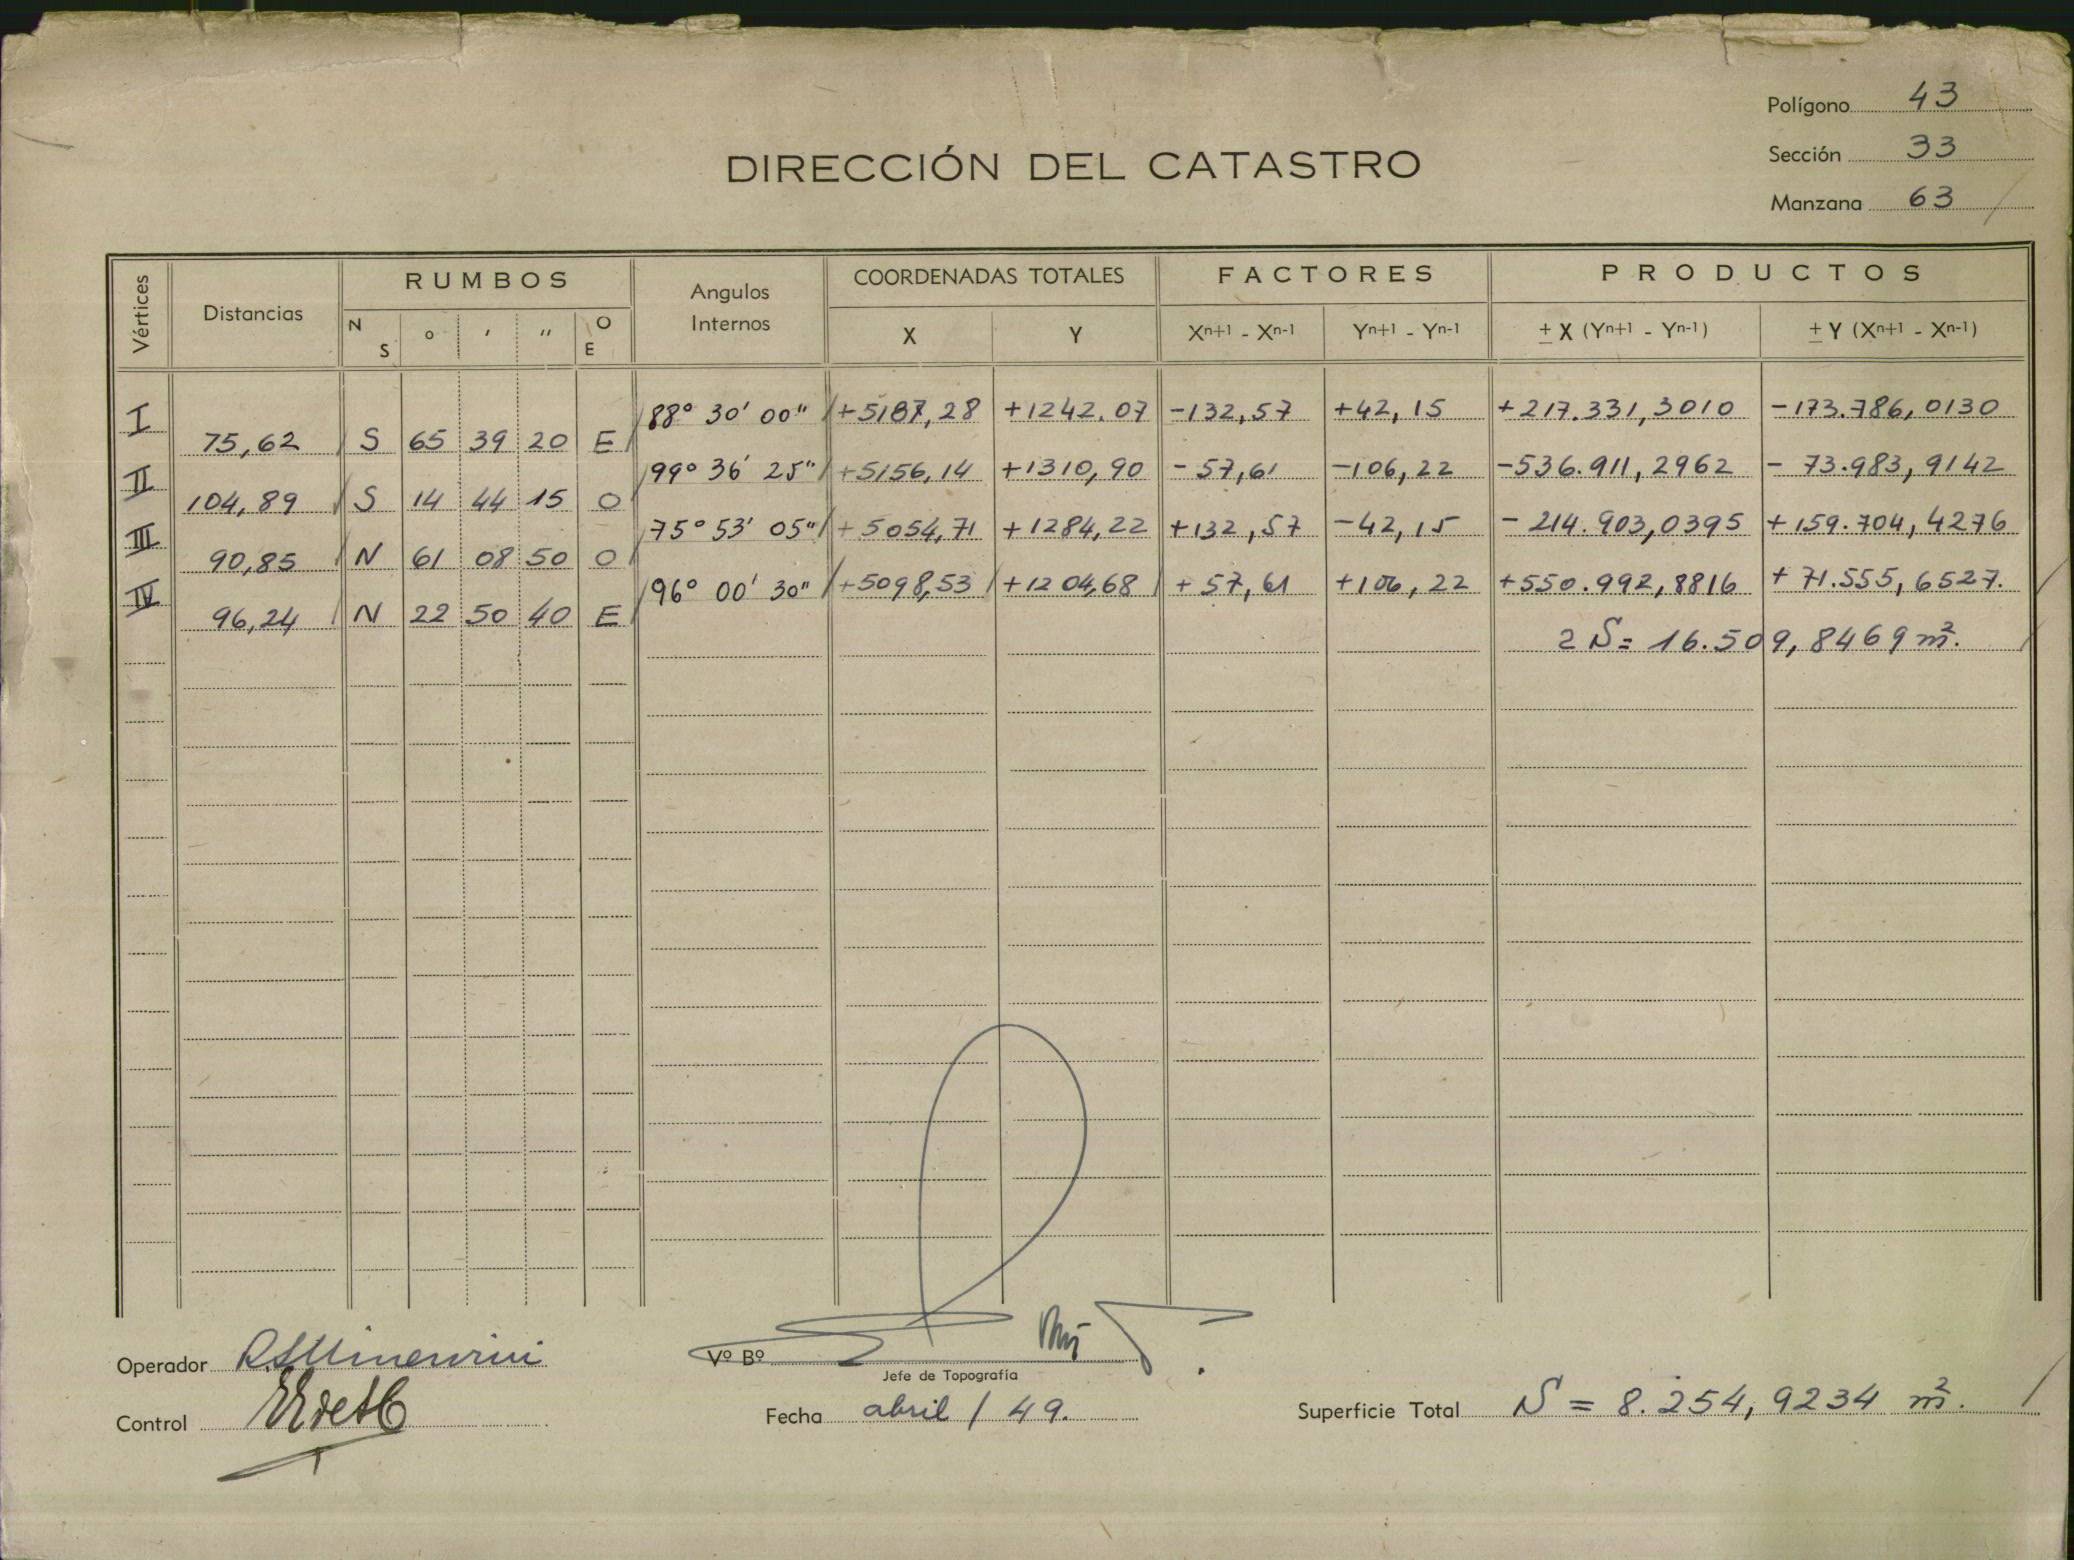 Polígono 43
Sección 33
Manzana 63
DIRECCIÓN DEL CATASTRO
Vértices Distancias RUMBOS Angulos Internos COORDENADAS TOTALES FACTORES PRODUCTOS
N S ° ' " O E X Y Xn+1 - Xn-1 Yn+1 - Yn-1 ± X (Yn+1 - Yn-1) ± Y (Xn+1 - Xn-1)
I 88° 30' 00" +5187,28 +1242.07 -132,57 +42,15 +217.331,3010 -173.786,0130
75,62 S 65 39 20 E
II 99° 36' 25" +5156,14 +1310,90 -57,61 -106,22 -536.911,2962 - 73.983,9142
104,89 S 14 44 15 O
III 75° 53' 05" +5054,71 +1284,22 +132,57 -42,15 -214.903,0395 +159.704,4276
90,85 N 61 08 50 O
IV 96° 00' 30" +5098,53 +1204,68 +57,61 +106,22 +550.992,8816 +71.555,6527.
96,24 N 22 50 40 E
2 S = 16.509,8469 m².
Operador
Vº Bº
Jefe de Topografía
Control
Fecha abril / 49.
Superficie Total S = 8.254,9234 m².